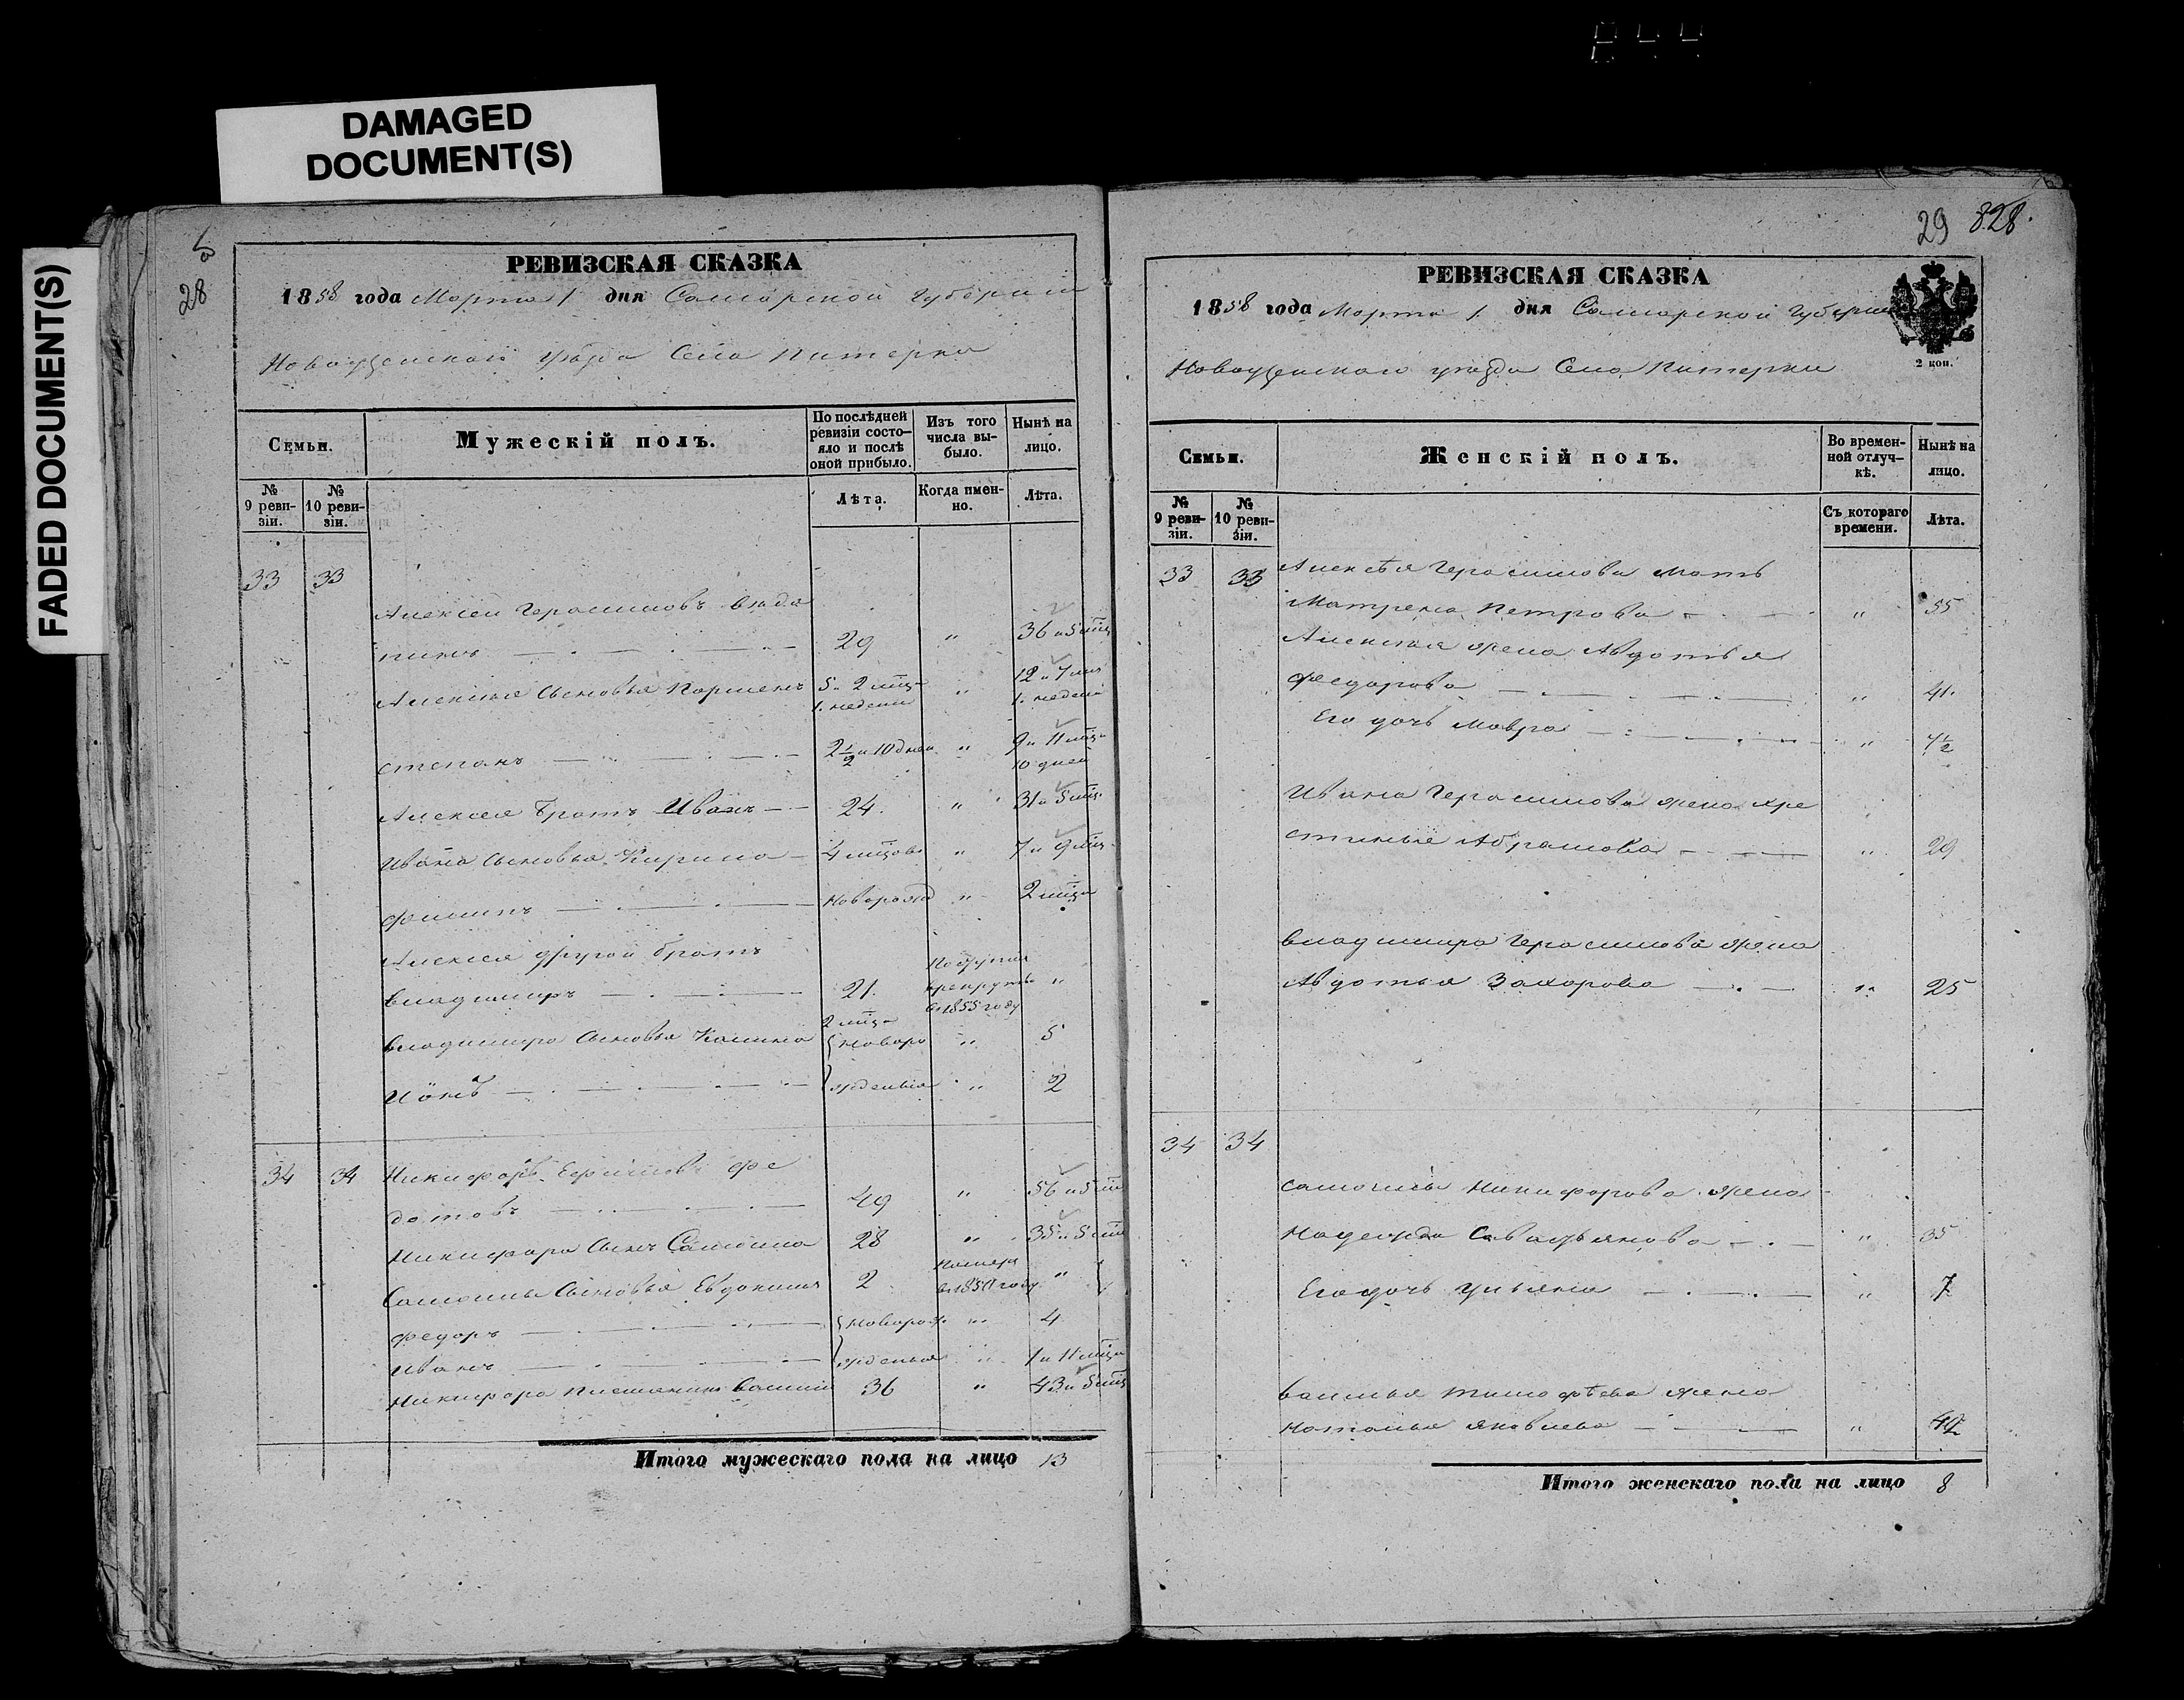 DAMAGED
DOCUMENT(S)
FADED DOCUMENT(S)
28
РЕВИЗСКАЯ СКАЗКА
1858 года Марта 1 дня Самарской Губернии
Новоузенскаго уезда Села Питерки
Семьи.
Мужескій полъ.
По послѣдней
ревизіи состо-
яло и послѣ
оной прибыло.
Изъ того
числа вы-
было.
Нынѣ на
лицо.
№
9 реви-
зіи.
№
10 реви-
зіи.
Лѣта.
Когда имен-
но.
Лѣта.
33 33
Алексей Герасимовъ
29 " 36 и 5 мца
Алексея сыновья Парменъ 5 и 2 мца " 12 и 7 мца
1. недели 1. недели
Степанъ 2½ и 10 дней " 9 и 11 мца
10 дней
Алексея братъ Иванъ 24. " 31 и 5 мца
Ивана сыновья Кирила 4 мцовъ " 7 и 9 мца
ФилипъНоворожд " 2 мца
Алексея другой братъ
Владимиръ 21. "
в 1855 году
Владимира сыновья Калина 2 мца Новоро " 5
Ионъ жденыя " 2
34 34 Никифоръ Ефимовъ Фе
дотовъ 49 " 56 и 5 мца
Никифора сынъ Самойла 28 " 35 и 5 мца
Самойлы сыновья Евдокимъ 2 "
Федоръ Новорож " 4
Иванъ жденыя " 1 и 11 мца
Никифора племянникъ Василий 36 " 43 и 5 мца
Итого мужескаго пола на лицо 13
29 828.
РЕВИЗСКАЯ СКАЗКА
1858 года Марта 1 дня Самарской Губернии
2 коп.
Новоузенскаго уезда Села Питерки
Семьи.
Женскій полъ.
Во времен-
ной отлуч-
кѣ.
Нынѣ на
лицо.
№
9 реви-
зіи.
№
10 реви-
зіи.
Съ котораго
времени.
Лѣта.
33 33 Алексѣя Герасимова мать
Матрена Петрова " 55
Алексея жена Авдотья
Федорова " 41.
Его дочь Мавра " 7½
Ивана Герасимова жена Хре
стинья Абрамова " 29
Владимира Герасимова жена
Авдотья Захарова " 25
34 34
Самойлы Никифорова жена
Надежда Савастьянова " 35
Его дочь Ульяна " 7
Василья Тимофѣева жена
Наталья Яковлева "
Итого женскаго пола на лицо 8